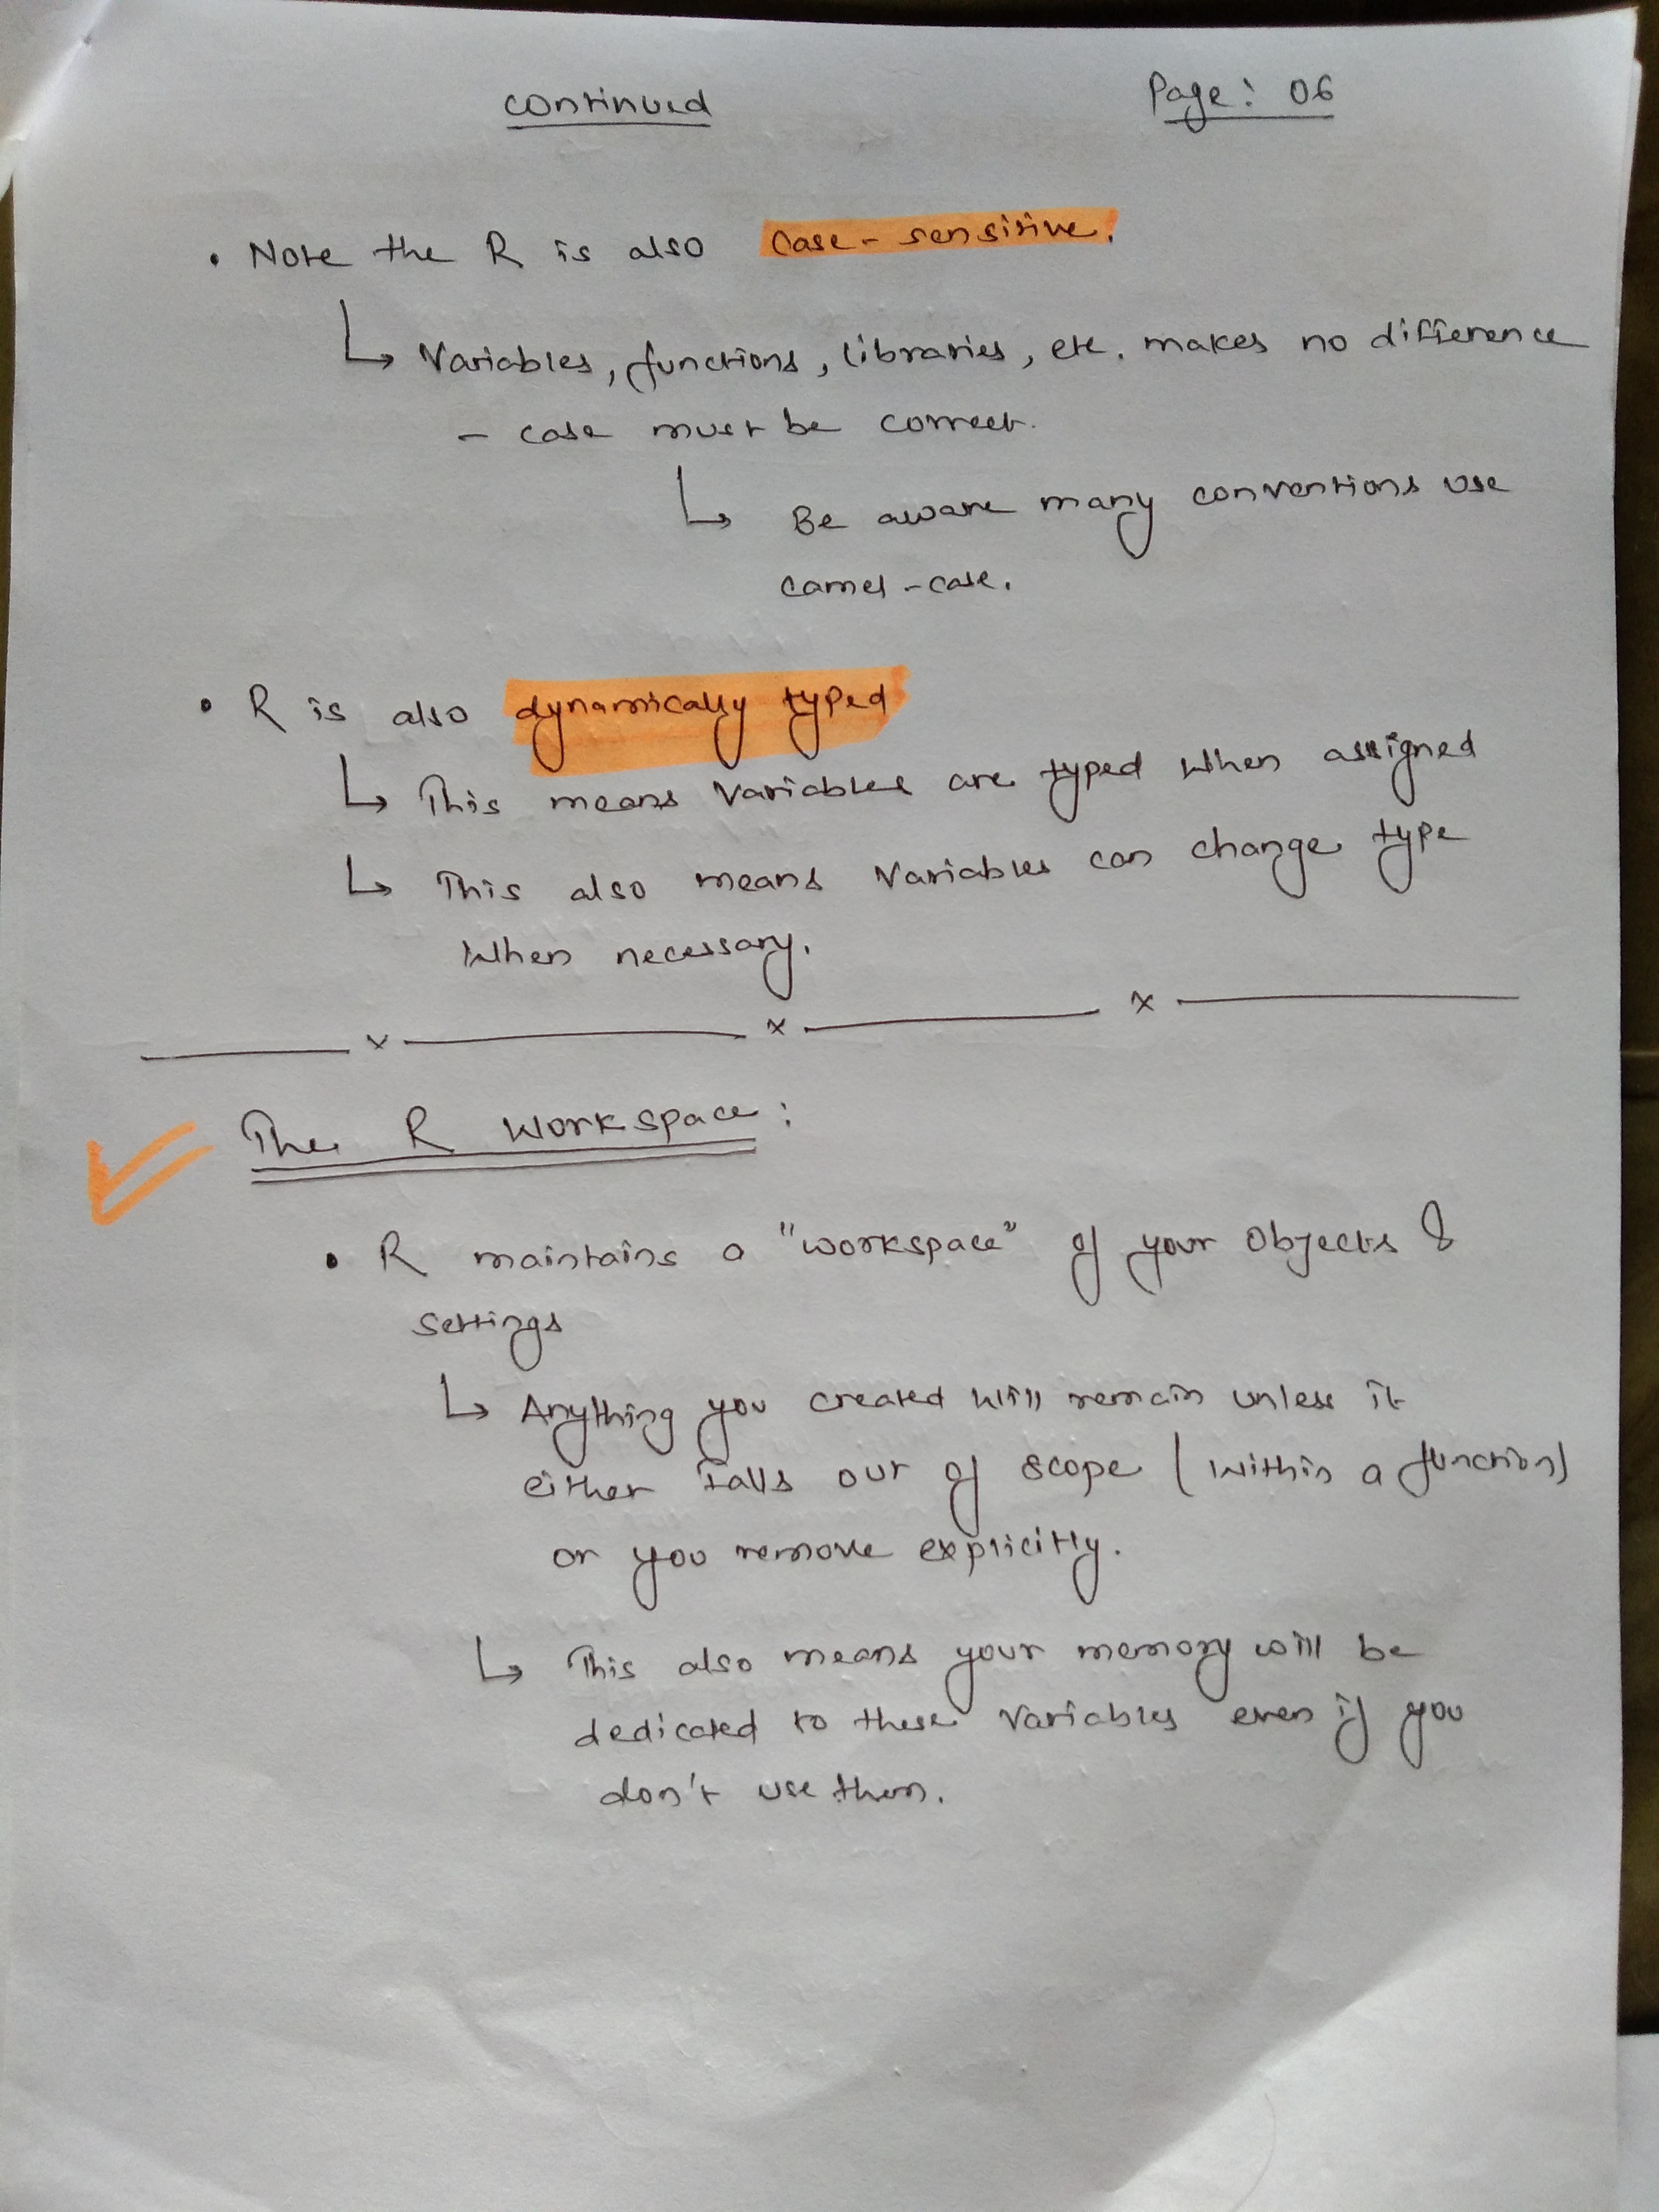 continued Page: 06
• Note the R is also case-sensitive.
↳ Variables, functions, libraries, etc. makes no difference
- case must be correct.
↳ Be aware many conventions use
camel-case.
• R is also dynamically typed
↳ This means Variables are typed when assigned
↳ This also means Variables can change type
When necessary.
x x x
The R Workspace:
• R maintains a "workspace" of your objects &
settings
↳ Anything you created will remain unless it
either falls out of scope (within a function)
or you remove explicitly.
↳ This also means your memory will be
dedicated to these Variables even if you
don't use them.